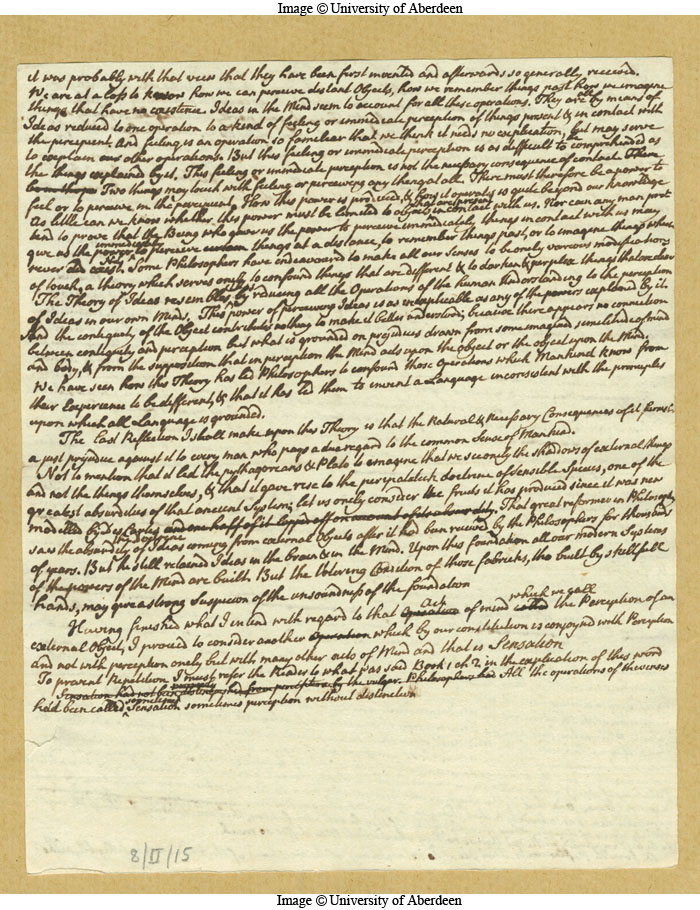 Image © University of Aberdeen
it was probably with that view that they have been first invented and afterwards so generally received.
We are at a loss to know how we can perceive distant Objects, how we remember things past how we imagine
things that have no existence. Ideas in the Mind seem to account for all these operations. They are all by means of
Ideas reduced to one operation to a kind of feeling or immediate perception of things present & in contact with
the percipient. And feeling is an operation so familiar that we think it needs no explication, but may serve
to explain our other operations. But this feeling or immediate perception is as difficult to be comprehended as
the things explained by it. This feeling or immediate perception is not the necessary consequence of contact. There
Two things may touch with feeling or perceiving any thing at all. There must therefore be a power to
feel or to perceive in the percipient. How this power is produced, & how it operats is quite beyond our knowledge
As little can we know whether this power must be limited to objects that are present in contact with us. Nor can any man pret
tend to prove that the Being who gave us the power to perceive immediately things in contact with us may
give us the power immediately to perceive things at a distance, to remember things past, or to imagine things which
never did exist. Some Philosophers have endeavoured to make all our Senses to be onely various modifications
of touch, a theory which serves onely to confound things that are different & to darken & perplex things that are clear
The Theory of Ideas resembles this by reducing all the Operations of the human Understanding to the perception
of Ideas in our own Minds. This power of perceiving Ideas is as inexplicable as any of the powers explained by it.
And the contiguity of the Object contributes nothing to make it better understood; because there appears no connection
between contiguity and perception but what is grounded on prejudices drawn from some imagined similitude of mind
and body, & from the supposition that in perception the Mind acts upon the object or the object upon the Mind.
We have seen how this Theory has led Philosophers to confound those Operations which Mankind know from
their Experience to be different, & that it has led them to invent a Language inconsistent with the principles
upon which all Language is grounded.
The last Reflection I shall make upon this Theory is that the Natural & Necessary Consequences of it furnish
a just prejudice against it to every man who pays a due regard to the common Sense of Mankind.
Not to mention that it led the pythagoreans & Plato to imagine that we see onely the shadows of external things
and not the things themselves, & that it gave rise to the peripatetick doctrine of sensible Species, one of the
greatest absurdities of that ancient System; let us onely consider the fruits it has produced since it was new
modelled by Des Cartes and one half of it lopped off on account of its absurdity. That great reformer in Philosophy
saw the absurdity of the doctrine of Ideas coming from external Objects after it had been received by the Philosophers for thousands
of years. But he still retained Ideas in the brain & in the Mind. Upon this foundation all our modern Systems
of the powers of the Mind are built. But the tottering Condition of those fabricks, tho built by skillfull
hands, may give a strong Suspicion of the unsoundness of the foundation
Having finished what I intend with regard to that Operation act of mind called which we call the Perception of an
external Object, I proceed to consider another Operation which by our constitution is conjoyned with Perception
and not with perception onely but with many other acts of Mind and that is Sensation
To prevent Repetition I must refer the Reader to what was said Book 1 ch 2 in the explication of this word
Sensation had not been distinguished from perception by the vulgar. Philosophers had All the operations of the senses
had been called sometimes Sensation sometimes perception without distinction
8/II/15
Image © University of Aberdeen